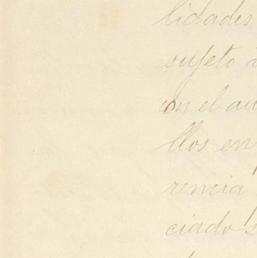 lidades
sujeto á
en el au
llos en
rencia
ciado s